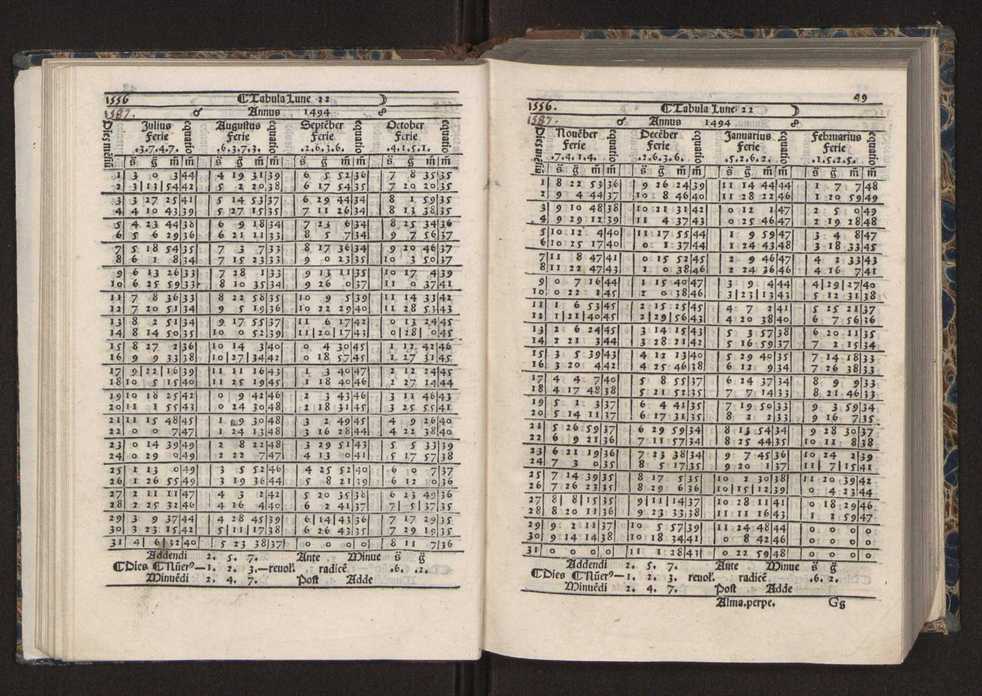 1556 ☾Tabula Lune 22 ☽
1587. ♂ Annus 1494 ☍
Dies mēsiū Julius equatio Augustus equatio Septēber equatio October equatio
Ferie Ferie Ferie Ferie
.3.7.4.7. .6.3.7.3. .2.6.3.6. .4.1.5.1.
s̄ g̅ m̄ m̄ s̄ g̅ m̄ m̄ s̄ g̅ m̄ m̄ s̄ g̅ m̄ m̄
1 3 0 3 44 4 19 31 39 6 5 52 36 7 8 35 35
2 3 13 54 42 5 2 20 38 6 17 54 35 7 20 20 35
3 3 27 25 41 5 14 53 37 6 29 44 34 8 1 59 35
4 4 10 43 39 5 27 15 35 7 11 26 34 8 13 38 35
5 4 23 44 38 6 9 18 34 7 23 6 34 8 25 34 36
6 5 6 29 36 6 21 11 33 8 5 7 34 9 7 56 37
7 5 18 54 35 7 3 7 33 8 17 36 34 9 20 46 37
8 6 1 8 34 7 15 23 33 9 0 23 35 10 3 50 37
9 6 13 26 33 7 28 1 33 9 13 11 35 10 17 4 39
10 6 25 59 33 8 10 35 34 9 26 0 37 11 0 37 41
11 7 8 36 33 8 22 58 35 10 9 5 39 11 14 33 42
12 7 20 51 34 9 5 19 36 10 22 29 40 11 28 53 43
13 8 2 51 34 9 17 55 37 11 6 17 42 0 13 24 45
14 8 14 50 35 10 0 52 39 11 20 17 43 0 28 0 45
15 8 27 2 36 10 14 3 40 0 4 30 45 1 12 42 46
16 9 9 33 38 10 27 34 42 0 18 57 45 1 27 31 45
17 9 22 16 39 11 11 16 43 1 3 40 47 2 12 24 45
18 10 5 15 40 11 25 19 45 1 18 40 46 2 27 14 44
19 10 18 25 42 0 9 42 46 2 3 43 46 3 11 46 43
20 11 1 55 43 0 24 30 48 2 18 31 45 3 25 55 41
21 11 15 48 45 1 9 30 48 3 2 49 45 4 9 26 40
22 0 0 7 47 1 24 13 48 3 16 28 44 4 22 38 40
23 0 14 39 49 2 8 22 48 3 29 51 43 5 5 33 39
24 0 29 0 49 2 22 7 47 4 13 0 41 5 17 57 38
25 1 13 0 49 3 5 52 46 4 25 52 40 6 0 7 37
26 1 26 55 49 3 19 36 44 5 8 21 39 6 12 0 36
27 2 11 11 47 4 3 2 42 5 20 35 38 6 23 49 36
28 2 25 32 46 4 16 4 40 6 2 41 37 7 5 37 35
29 3 9 37 44 4 28 45 39 6 14 43 36 7 17 29 35
30 3 23 15 42 5 11 17 38 6 26 43 35 7 29 19 35
31 4 6 32 40 5 23 38 37 0 0 0 0 8 11 7 36
Addendi 2. 5. 7. Ante Minue s̄ g̅
☾Dies ☾Nūer⁹— 1. 2. 3.—reuol. radicē .6. .2.
Minuēdi 2. 4. 7. Post Adde
49
1556. ☾Tabula Lune 22 ☽
1587. ♂ Annus 1494 ☍
Dies mēsiū Nouēber equatio Decēber equatio Januarius equatio Februarius equatio
Ferie Ferie Ferie Ferie
.7.4.1.4. .2.6.3.6. .5.2.6.2. .1.5.2.5.
s̄ g̅ m̄ m̄ s̄ g̅ m̄ m̄ s̄ g̅ m̄ m̄ s̄ g̅ m̄ m̄
1 8 22 53 36 9 26 24 39 11 14 44 44 1 7 7 48
2 9 4 44 37 10 8 46 40 11 28 22 46 1 20 59 49
3 9 10 48 38 10 21 31 42 0 12 1 47 2 5 0 49
4 9 29 12 39 11 4 37 43 0 25 46 47 2 19 28 48
5 10 12 4 40 11 17 55 44 1 9 59 47 3 4 8 47
6 10 25 17 40 0 1 37 44 1 24 43 48 3 18 33 45
7 11 8 47 41 0 15 52 45 2 9 46 47 4 2 33 43
8 11 22 47 43 1 0 38 46 2 24 36 46 4 16 7 41
9 0 7 16 44 1 15 40 47 3 9 4 44 4 29 27 40
10 0 22 1 45 2 0 38 46 3 23 13 43 5 12 31 38
11 1 6 53 45 2 15 25 45 4 7 2 41 5 25 21 37
12 1 21 40 45 2 29 56 43 4 20 38 40 6 7 56 36
13 2 6 24 45 3 14 15 43 5 3 57 38 6 20 11 35
14 2 21 3 44 3 28 21 42 5 16 59 37 7 2 15 34
15 3 5 39 43 4 12 13 40 5 29 40 35 7 14 18 33
16 3 20 4 42 4 25 46 38 6 12 9 34 7 26 38 33
17 4 4 7 40 5 8 55 37 6 24 37 34 8 9 9 33
18 4 17 48 38 5 21 52 35 7 7 14 33 8 21 46 33
19 5 1 3 37 6 4 41 35 7 19 50 33 9 3 59 34
20 5 14 11 37 6 17 31 35 8 2 2 33 9 16 7 35
21 5 26 59 37 6 29 59 34 8 13 54 34 9 28 30 37
22 6 9 21 36 7 11 57 34 8 25 44 35 10 11 8 38
23 6 21 19 36 7 23 38 34 9 7 45 36 10 24 2 39
24 7 3 0 35 8 5 17 35 9 20 1 37 11 7 15 41
25 7 14 39 35 8 17 5 35 10 2 30 38 11 20 39 42
26 7 26 23 35 8 29 6 36 10 15 12 39 0 4 23 44
27 8 8 15 35 9 11 14 37 10 28 11 41 0 18 29 46
28 8 20 11 36 9 23 33 38 11 11 16 43 1 2 59 47
29 9 2 11 37 10 5 57 39 11 24 48 44 0 0 0 0
30 9 14 14 38 10 18 34 41 0 8 42 46 0 0 0 0
31 0 0 0 0 11 1 28 43 0 22 59 48 0 0 0 0
Addendi 2. 5. 7. Ante Minue s̄ g̅
☾Dies ☾Nūer⁹— 1. 2. 3. reuol. radicē .6. 2.
Minuēdi 2. 4. 7. Post Adde
Alma.perpe. Gg